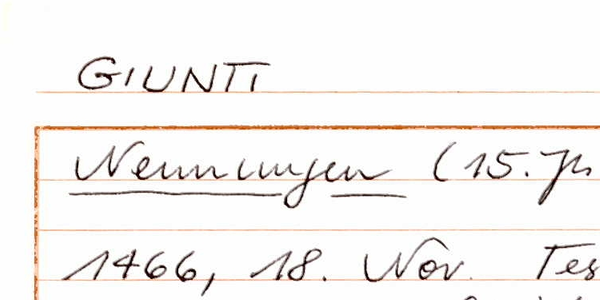 GIUNTI
Nennungen (15. Jh
1466, 18. Nov. Tes